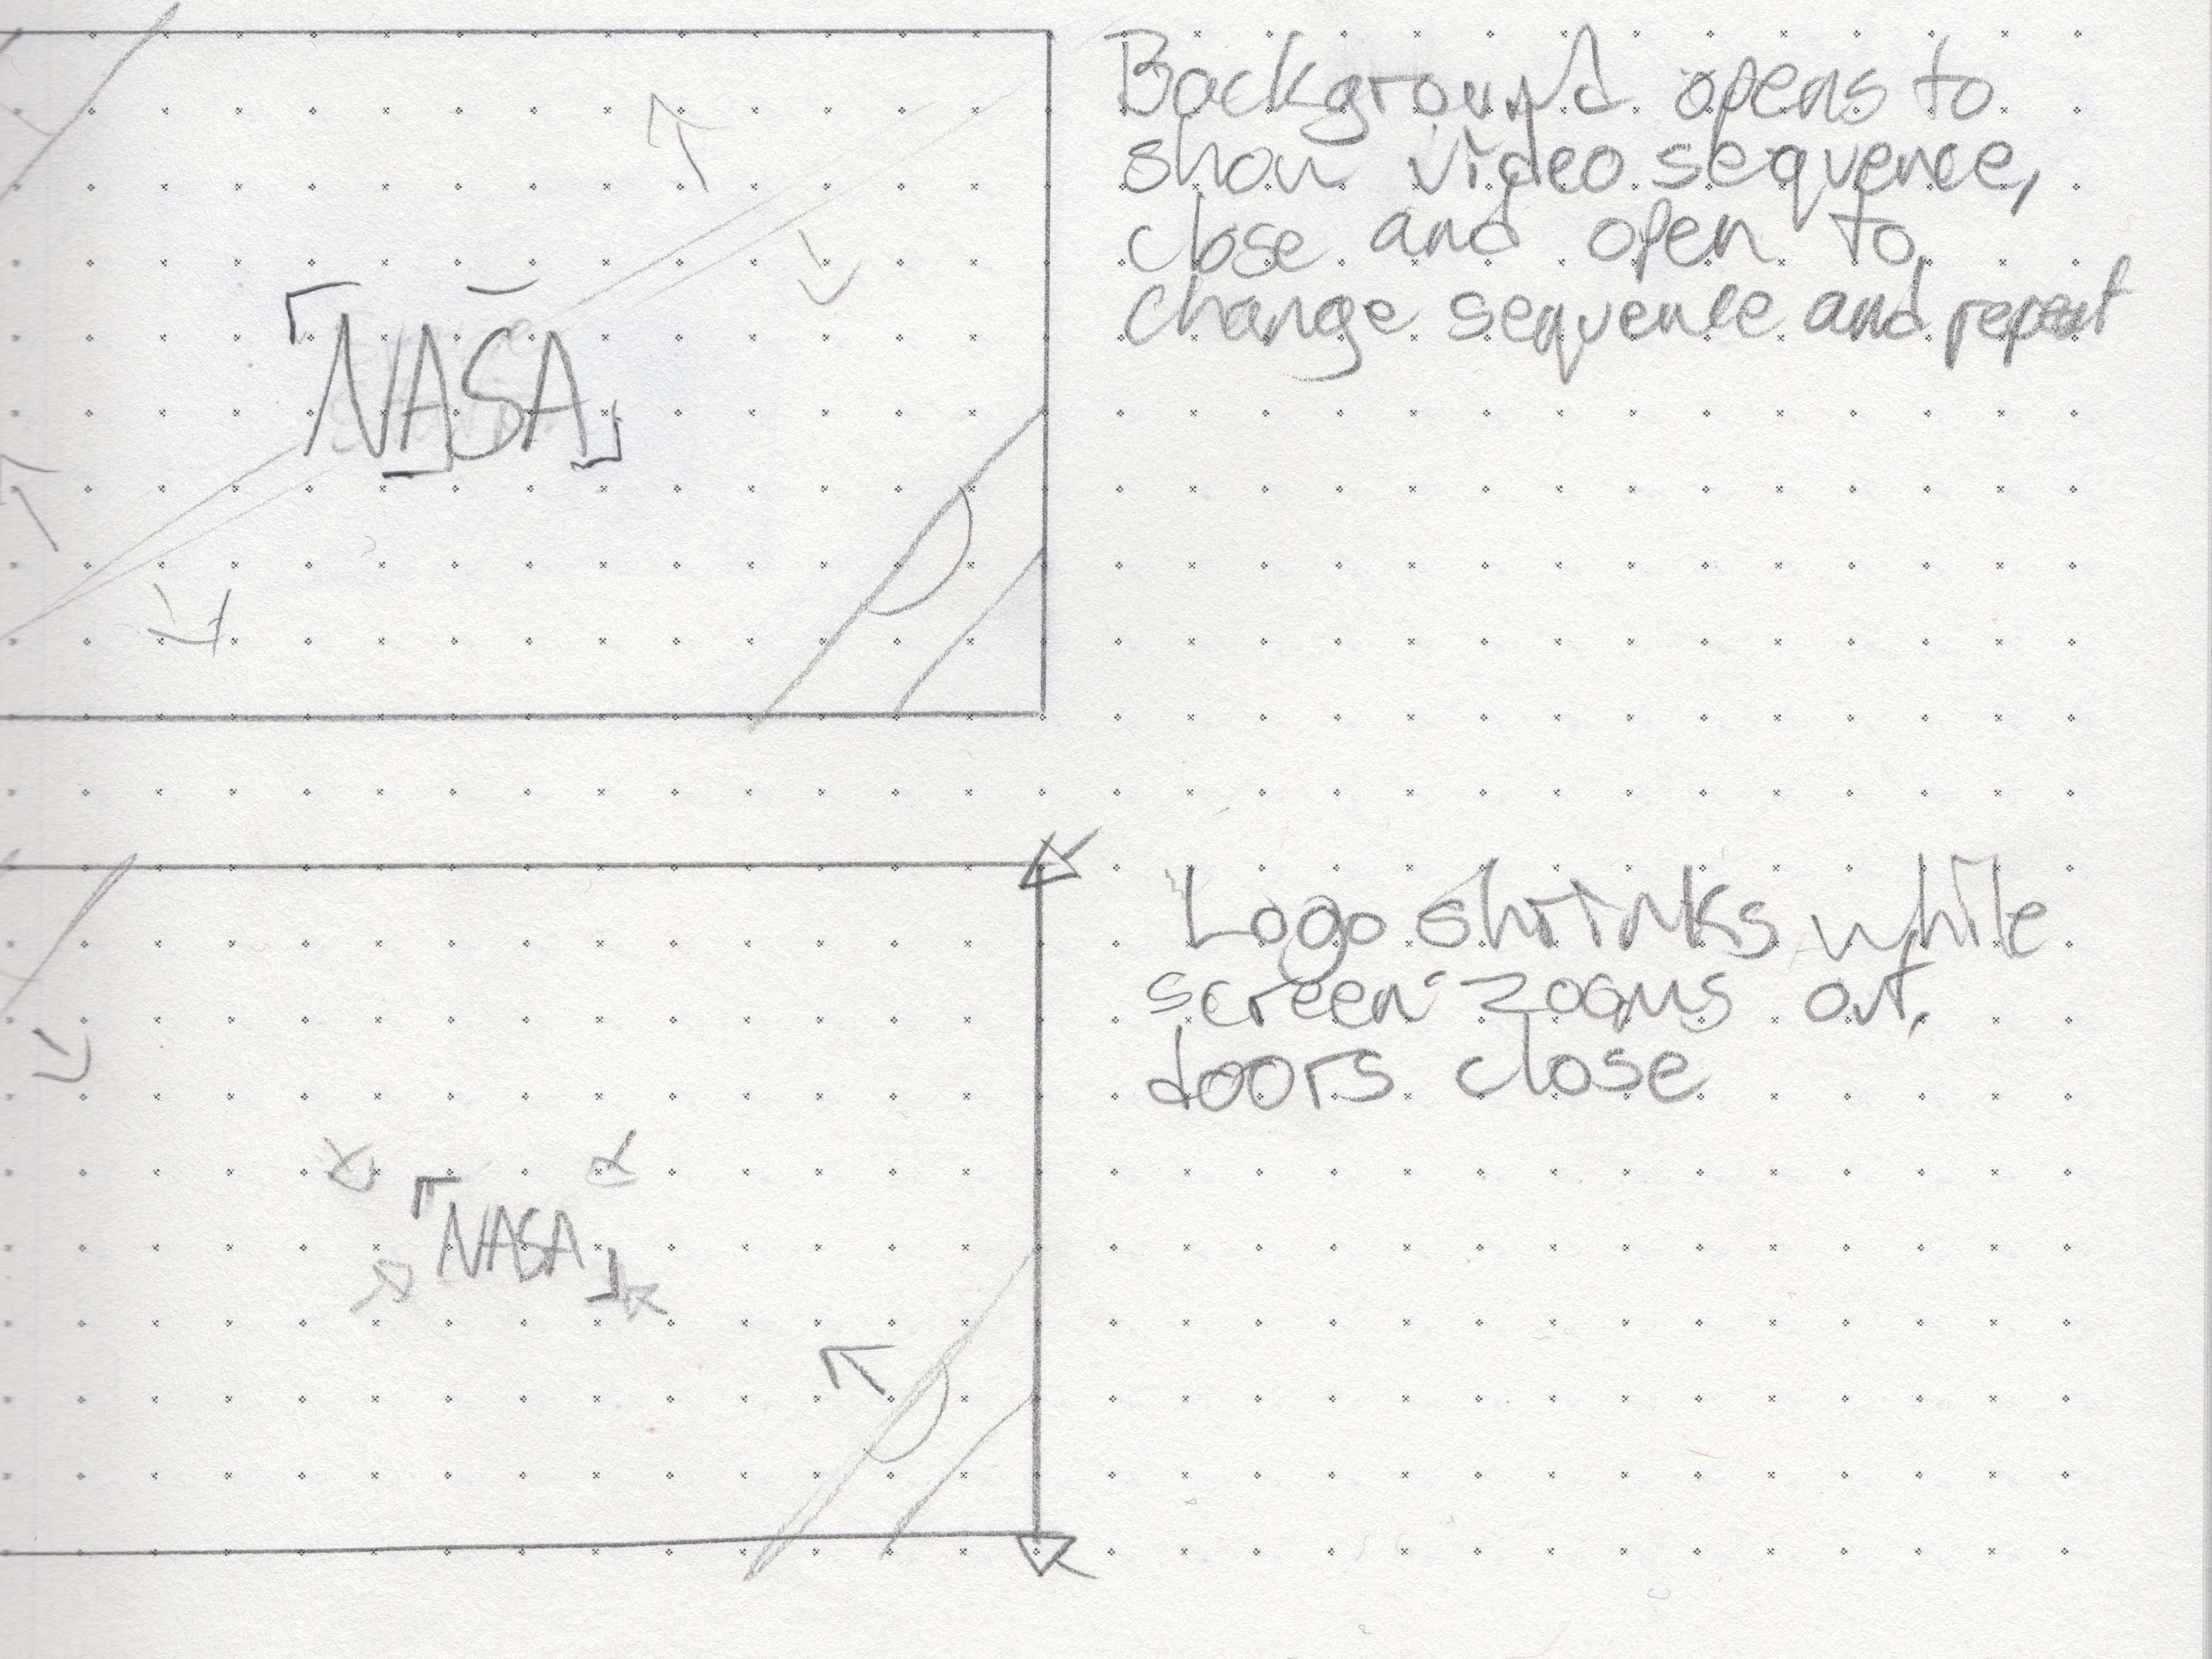 Background opens to
show video sequence,
close and open to
change sequence and repeat
「NASA」
Logo shrinks while
screen zooms out,
doors close
「NASA」